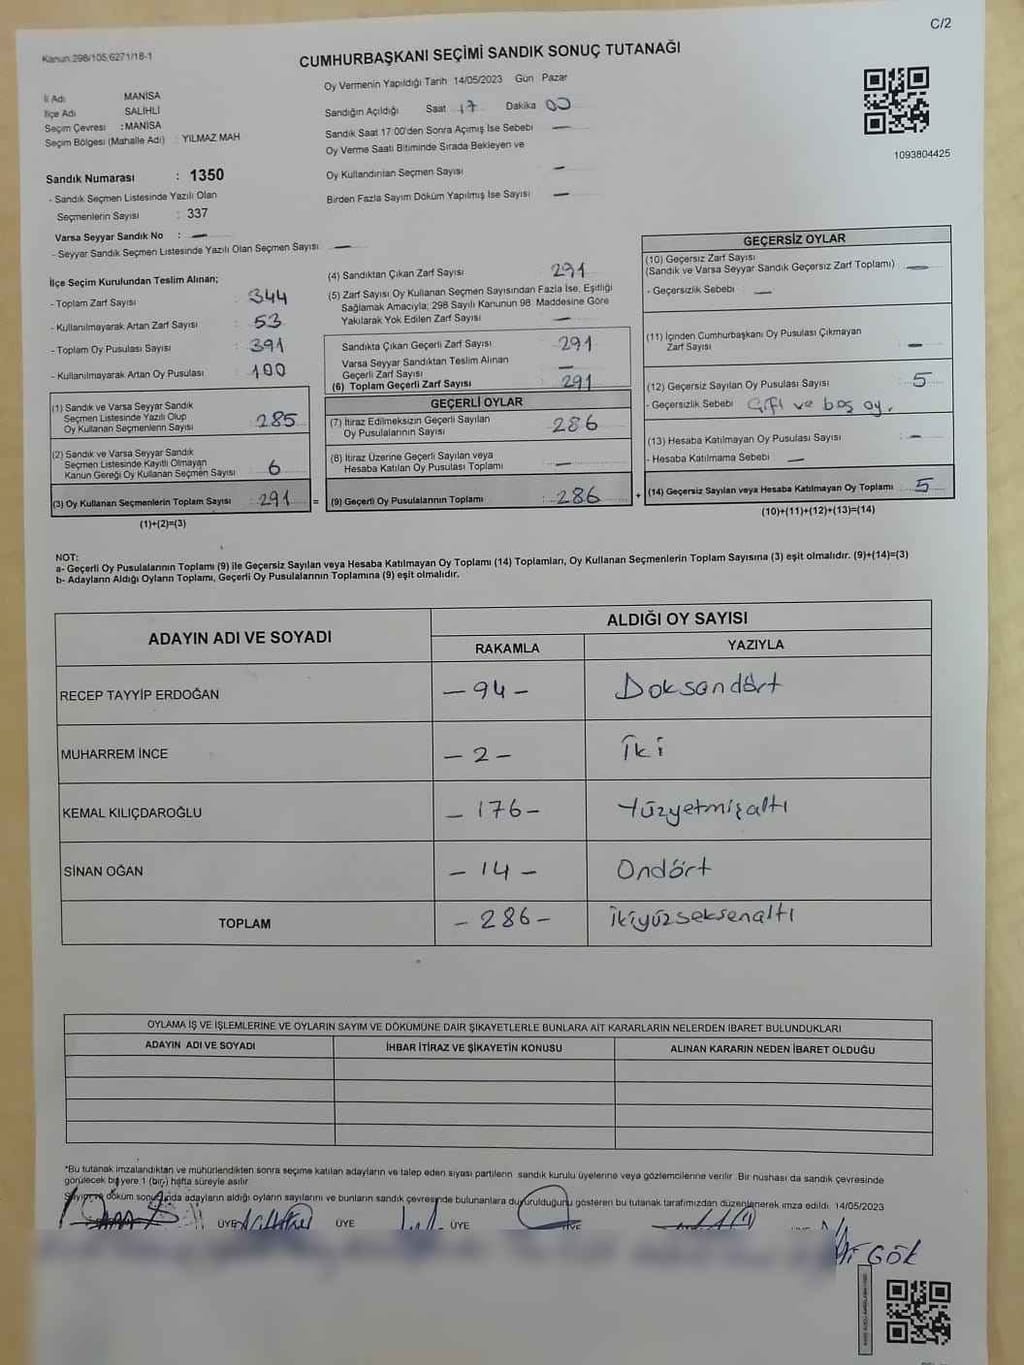 C/2
Kanun 298/105;6271/18-1
CUMHURBAŞKANI SEÇİMİ SANDIK SONUÇ TUTANAĞI
Oy Vermenin Yapıldığı Tarih 14/05/2023 Gün Pazar
İl Adı MANİSA
İlçe Adı SALİHLİ
Seçim Çevresi : MANİSA
Seçim Bölgesi (Mahalle Adı) : YILMAZ MAH
Sandığın Açıldığı Saat 17 Dakika 00
Sandık Saat 17:00'den Sonra Açımış İse Sebebi —
Oy Verme Saati Bitiminde Sırada Bekleyen ve
Oy Kullandırılan Seçmen Sayısı —
Birden Fazla Sayım Döküm Yapılmış İse Sayısı —
1093804425
Sandık Numarası : 1350
- Sandık Seçmen Listesinde Yazılı Olan
Seçmenlerin Sayısı : 337
Varsa Seyyar Sandık No : —
- Seyyar Sandık Seçmen Listesinde Yazılı Olan Seçmen Sayısı —
İlçe Seçim Kurulundan Teslim Alınan;
- Toplam Zarf Sayısı : 344
- Kullanılmayarak Artan Zarf Sayısı : 53
- Toplam Oy Pusulası Sayısı : 391
- Kullanılmayarak Artan Oy Pusulası : 100
(1) Sandık ve Varsa Seyyar Sandık
Seçmen Listesinde Yazılı Olup
Oy Kullanan Seçmenlerin Sayısı : 285
(2) Sandık ve Varsa Seyyar Sandık
Seçmen Listesinde Kayıtlı Olmayan
Kanun Gereği Oy Kullanan Seçmen Sayısı : 6
(3) Oy Kullanan Seçmenlerin Toplam Sayısı : 291 =
(1)+(2)=(3)
(4) Sandıktan Çıkan Zarf Sayısı : 291
(5) Zarf Sayısı Oy Kullanan Seçmen Sayısından Fazla İse, Eşitliği
Sağlamak Amacıyla; 298 Sayılı Kanunun 98 Maddesine Göre
Yakılarak Yok Edilen Zarf Sayısı —
Sandıkta Çıkan Geçerli Zarf Sayısı : 291
Varsa Seyyar Sandıktan Teslim Alınan
Geçerli Zarf Sayısı —
(6) Toplam Geçerli Zarf Sayısı : 291
GEÇERLİ OYLAR
(7) İtiraz Edilmeksizin Geçerli Sayılan
Oy Pusulalarının Sayısı : 286
(8) İtiraz Üzerine Geçerli Sayılan veya
Hesaba Katılan Oy Pusulası Toplamı : —
(9) Geçerli Oy Pusulalarının Toplamı : 286 +
GEÇERSİZ OYLAR
(10) Geçersiz Zarf Sayısı
(Sandık ve Varsa Seyyar Sandık Geçersiz Zarf Toplamı) : —
- Geçersizlik Sebebi : —
(11) İçinden Cumhurbaşkanı Oy Pusulası Çıkmayan
Zarf Sayısı : —
(12) Geçersiz Sayılan Oy Pusulası Sayısı : 5
- Geçersizlik Sebebi : Çift ve boş oy.
(13) Hesaba Katılmayan Oy Pusulası Sayısı : —
- Hesaba Katılmama Sebebi : —
(14) Geçersiz Sayılan veya Hesaba Katılmayan Oy Toplamı : 5
(10)+(11)+(12)+(13)=(14)
NOT:
a- Geçerli Oy Pusulalarının Toplamı (9) ile Geçersiz Sayılan veya Hesaba Katılmayan Oy Toplamı (14) Toplamları, Oy Kullanan Seçmenlerin Toplam Sayısına (3) eşit olmalıdır. (9)+(14)=(3)
b- Adayların Aldığı Oyların Toplamı, Geçerli Oy Pusulalarının Toplamına (9) eşit olmalıdır.
ADAYIN ADI VE SOYADI ALDIĞI OY SAYISI
RAKAMLA YAZIYLA
RECEP TAYYİP ERDOĞAN - 94 - Doksandört
MUHARREM İNCE - 2 - İki
KEMAL KILIÇDAROĞLU - 176 - Yüzyetmişaltı
SİNAN OĞAN - 14 - Ondört
TOPLAM - 286 - İkiyüzseksenaltı
OYLAMA İŞ VE İŞLEMLERİNE VE OYLARIN SAYIM VE DÖKÜMÜNE DAİR ŞİKAYETLERLE BUNLARA AİT KARARLARIN NELERDEN İBARET BULUNDUKLARI
ADAYIN ADI VE SOYADI İHBAR İTİRAZ VE ŞİKAYETİN KONUSU ALINAN KARARIN NEDEN İBARET OLDUĞU
*Bu tutanak imzalandıktan ve mühürlendikten sonra seçime katılan adayların ve talep eden siyasi partilerin sandık kurulu üyelerine veya gözlemcilerine verilir. Bir nüshası da sandık çevresinde
görülecek bir yere 1 (bir) hafta süreyle asılır
Sayım ve döküm sonucunda adayların aldığı oyların sayılarını ve bunların sandık çevresinde bulunanlara duyurulduğunu gösteren bu tutanak tarafımızdan düzenlenerek imza edildi. 14/05/2023
ÜYE ÜYE ÜYE ÜYE
GÖK